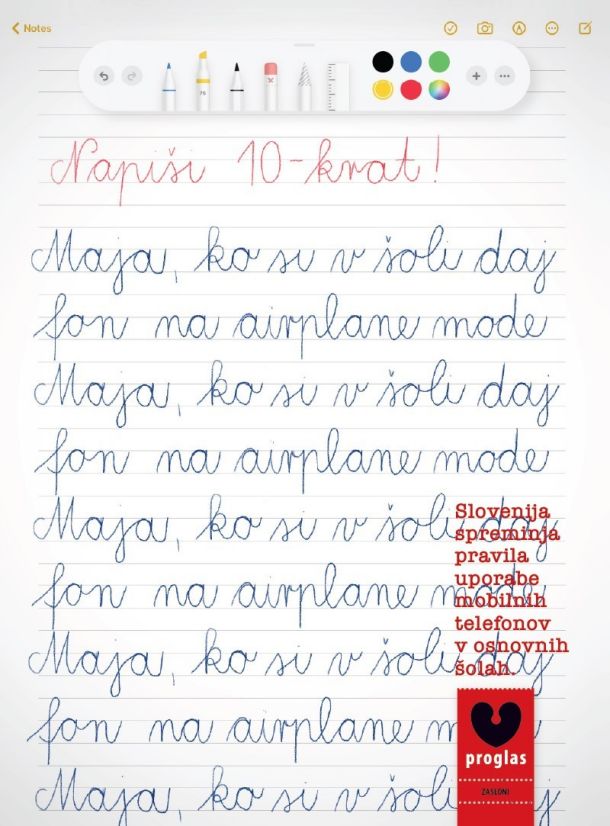 Notes
76
Napiši 10-krat!
Maja, ko si v šoli daj
fon na airplane mode
Maja, ko si v šoli daj
fon na airplane mode
Maja, ko si v šoli daj
fon na airplane mode
Maja, ko si v šoli daj
fon na airplane mode
Maja, ko si v šoli daj
Slovenija
spreminja
pravila
uporabe
mobilnih
telefonov
v osnovnih
šolah.
proglas
ZASLONI